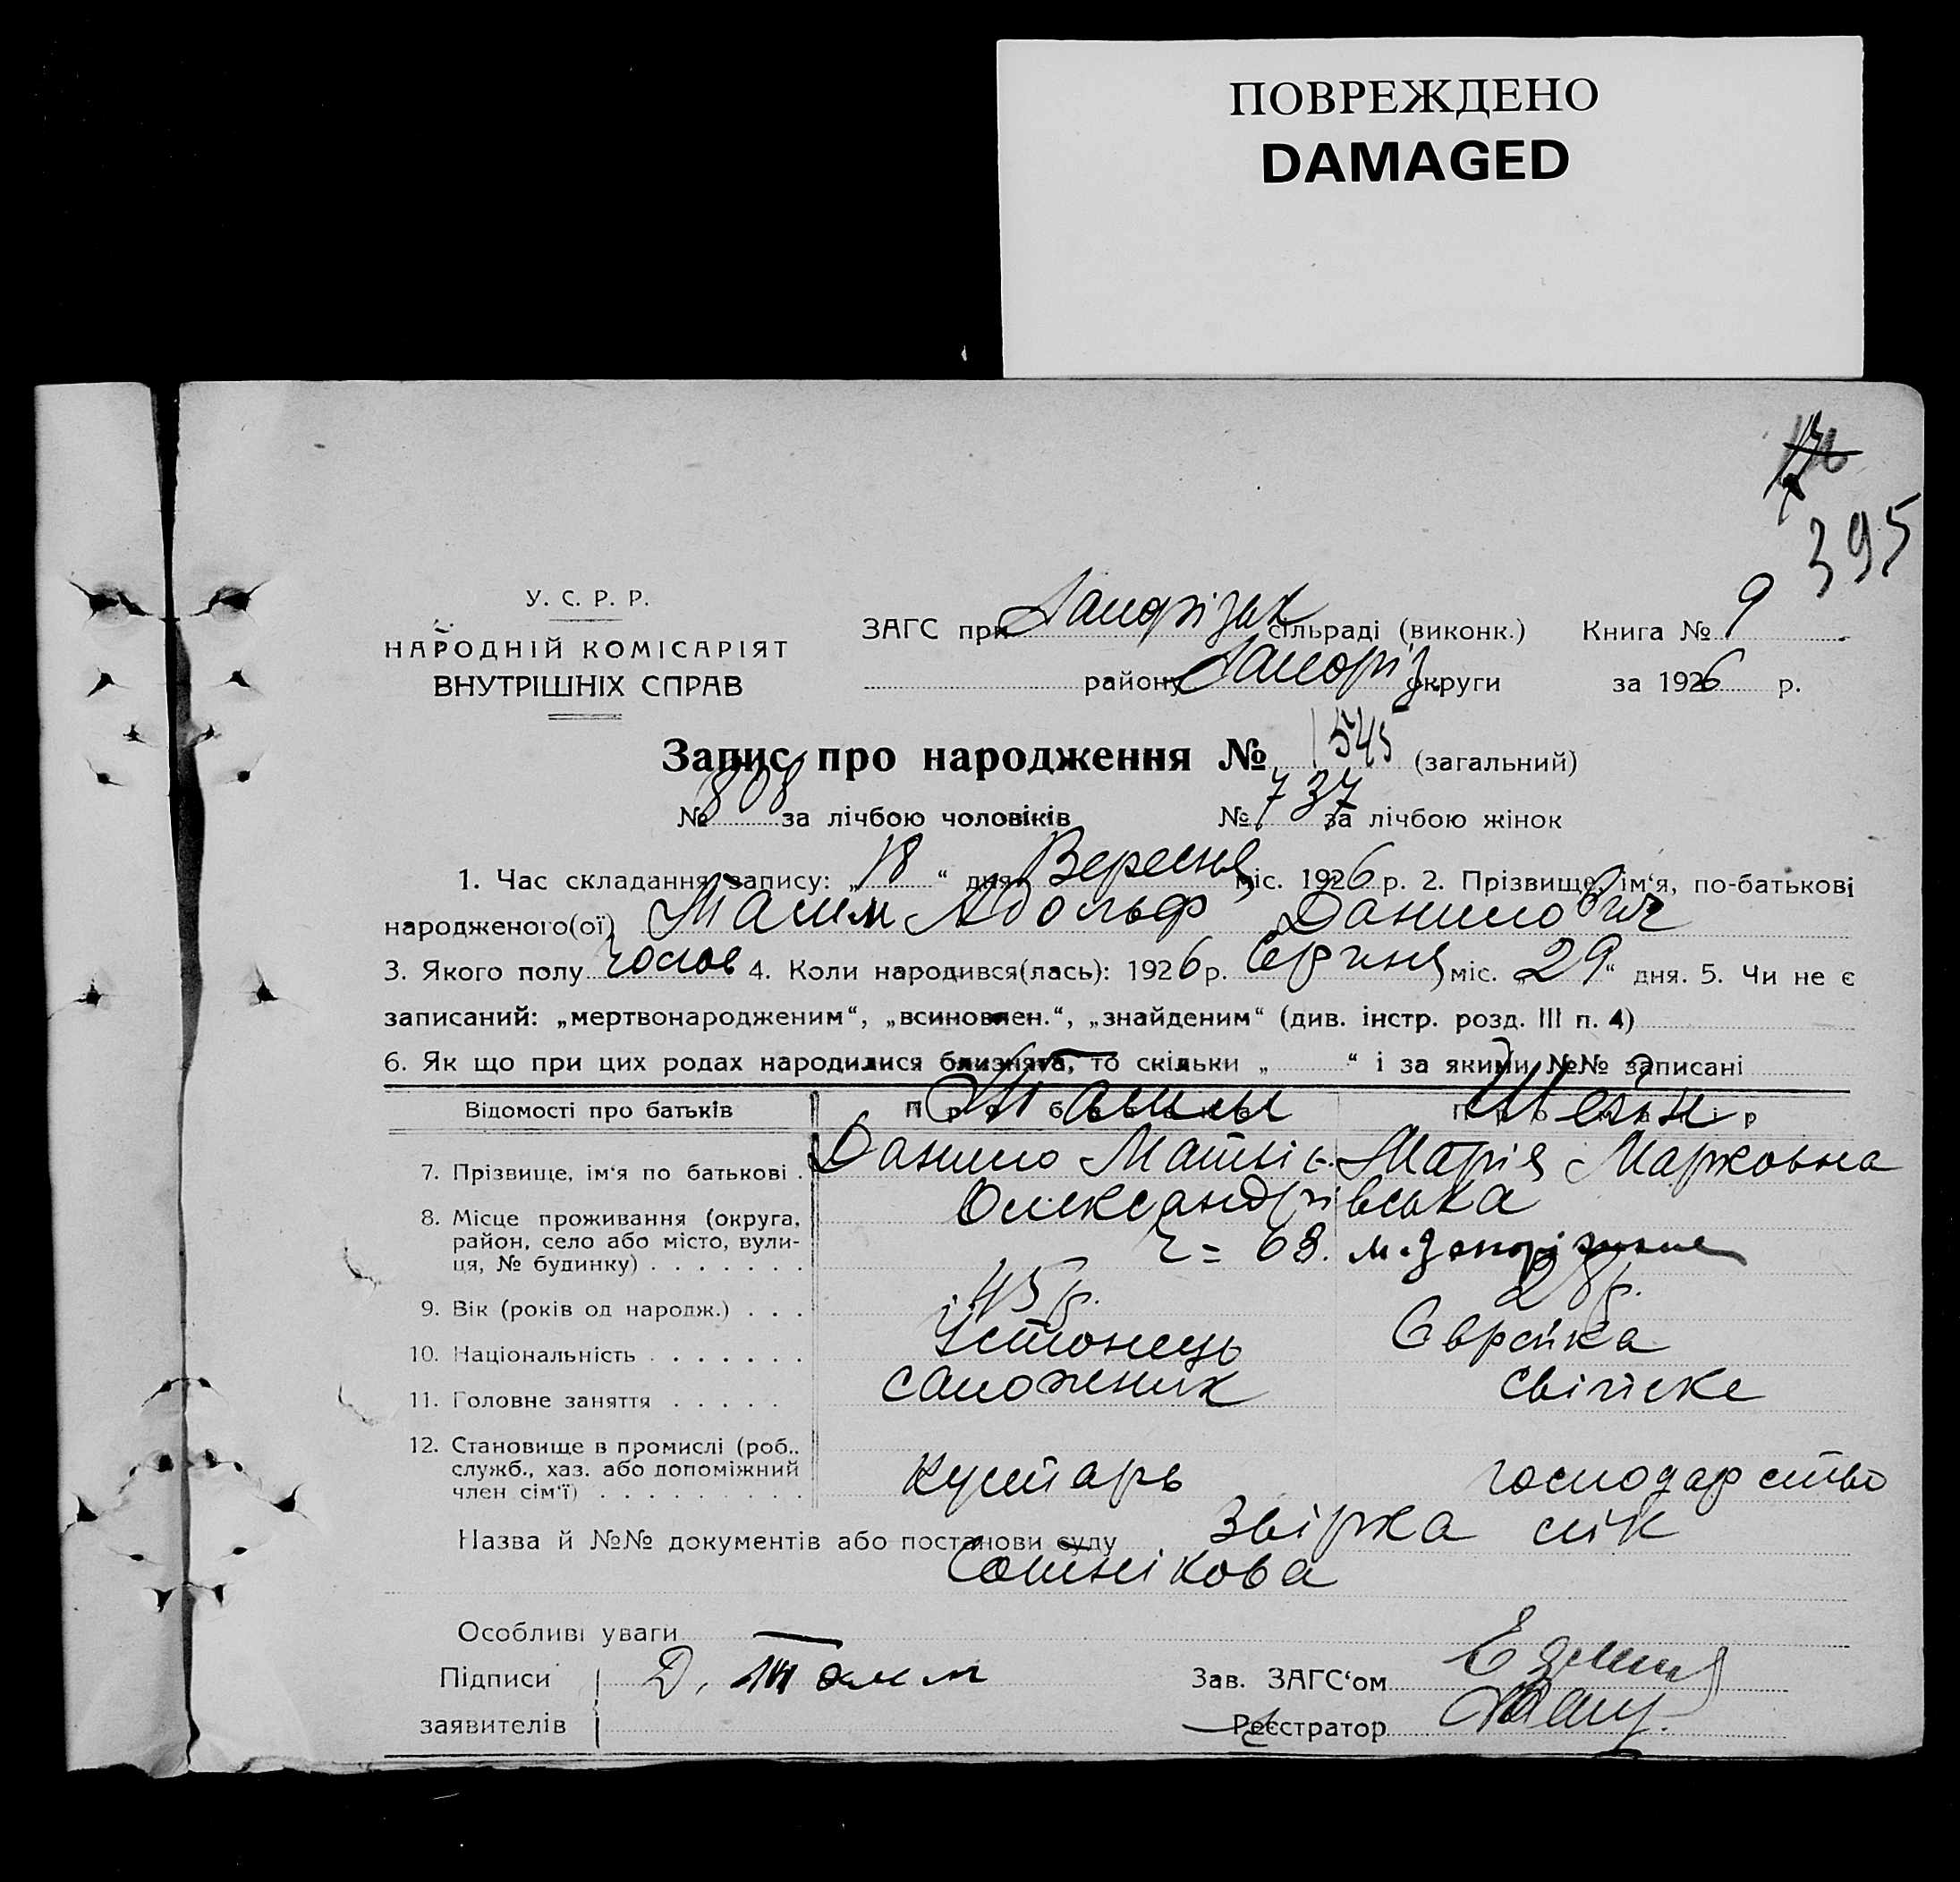 ПОВРЕЖДЕНО
DAMAGED
395
У. С. Р. Р.
НАРОДНІЙ КОМІСАРІЯТ
ВНУТРІШНІХ СПРАВ
ЗАГС при Запорізьк сільраді (виконк.) Книга № 9
району Запоріз. округи за 1926 р.
Запис про народження № 1545 (загальний)
№ 808 за лічбою чоловіків № 737 за лічбою жінок
1. Час складання запису: „18“ дня Вересня міс. 1926 р. 2. Прізвище, ім‘я, по-батькові
народженого(ої) Тамм Адольф Данилович
3. Якого полу чолов 4. Коли народився(лась): 1926 р. Серпня міс. „29“ дня. 5. Чи не є
записаний: „мертвонародженим“, „всиновлен.“, „знайденим“ (див. інстр. розд. III п. 4)
6. Як що при цих родах народилися близнята, то скільки „ “ і за якими №№ записані
Відомості про батьків Про батька Про матір
Тамм Шейн
7. Прізвище, ім‘я по батькові . Данило Матвіє. Марія Марковна
8. Місце проживання (округа, Олександрівська
район, село або місто, вули-
ця, № будинку) . . . . . . . 68. м. Запоріжжє
9. Вік (років од народж.) . . . 45 р. 28 р.
10. Національність . . . . . . . Естонець Єврейка
11. Головне заняття . . . . . сапожник свійске
12. Становище в промислі (роб..
служб., хаз. або допоміжний
член сім‘ї) . . . . . . . . . кустарь господарство
Назва й №№ документів або постанови суду Звірка
Сотнікова
Особливі уваги
Підписи Д. Тамм Зав. ЗАГС‘ом
заявителів Реєстратор